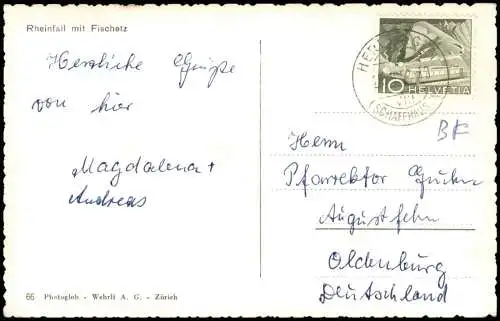 Rheinfall mit Fischetz
Herzliche Grüße
von hier
Magdalena +
Andreas
10 HELVETIA
(SCHAFFHAUSEN)
BK
Herrn
Pfarrektor
Augustfehn
Oldenburg
Deutschland
66 Photoglob - Wehrli A. G. - Zürich